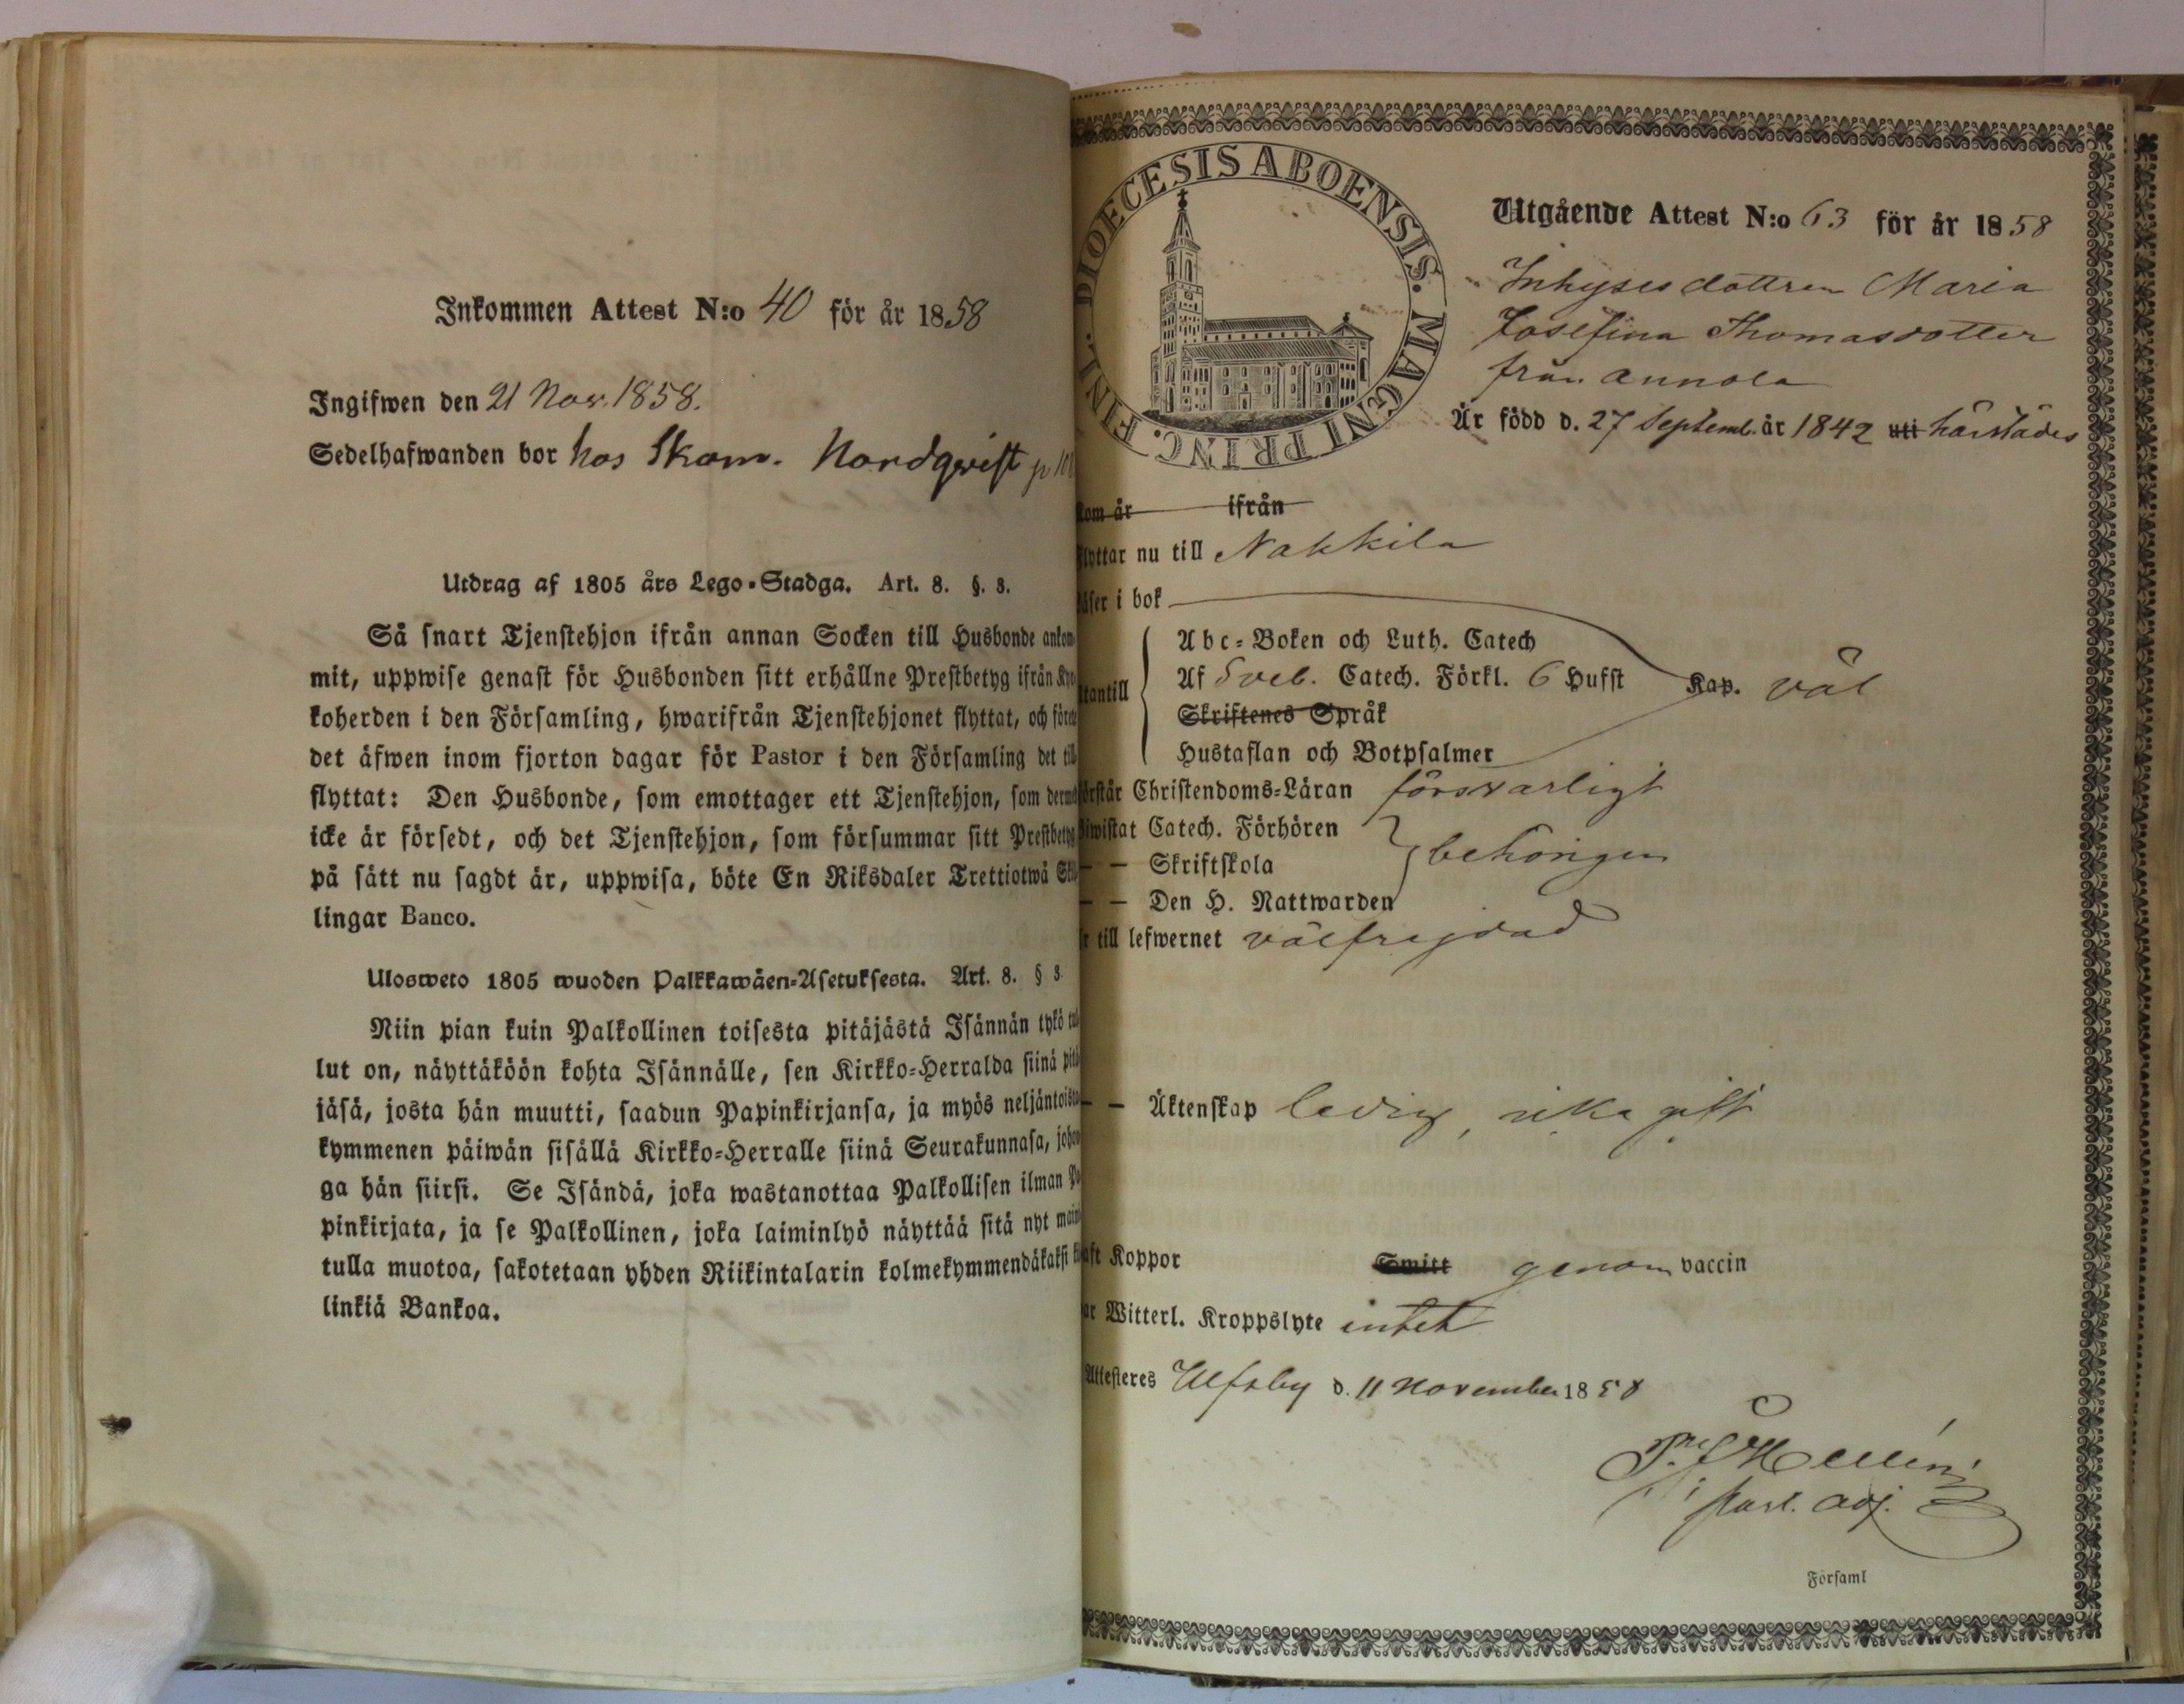 Inkommen Attest N:o 40 för år 1858
Ingifwen den 21 Nov. 1858.
Sedelhafwanden bor hos Skom. Nordqvist p
Utdrag af 1805 års Lego-Stadga. Art. 8. §. 3.
Så snart Tjenstehjon ifrån annan Socken till Husbonde ankom
mit, uppwise genast för Husbonden sitt erhållne Prestbetyg ifrån Kyr
koherden i den Församling, hwarifrån Tjenstehjonet flyttat, och före
det äfwen inom fjorton dagar för Pastor i den Församling det till
flyttat: Den Husbonde, som emottager ett Tjenstehjon, som dermed
icke är försedt, och det Tjenstehjon, som försummar sitt Prestbetyg
på sätt nu sagdt är, uppwisa, böte En Riksdaler Trettiotwå Skil
lingar Banco.
Ulosweto 1805 wuoden Palkkawäen-Asetuksesta. Art. 8. § 3.
Niin pian kuin Palkollinen toisesta pitäjästä Isännän tykö tul
lut on, näyttäköön kohta Isännälle, sen Kirkko-Herralda siinä pitä
jäsä, josta hän muutti, saadun Papinkirjansa, ja myös neljäntoista
kymmenen päiwän sisällä Kirkko-Herralle siinä Seurakunnasa, johon
ga hän siirsi. Se Isändä, joka wastanottaa Palkollisen ilman Pa
pinkirjata, ja se Palkollinen, joka laiminlyö näyttää sitä nyt mainit
tulla muotoa, sakotetaan yhden Riikintalarin kolmekymmendäkaksi kil
linkiä Bankoa.
DIOECESIS ABOENSIS. MAGNI PRINC. FINL.
Utgående Attest N:o 63 för år 1858
Inhyses dottren Maria
Josefina Thomasdotter
från Annola
Är född d. 27 Septemb. år 1842 uti härstädes
kom år ifrån
flyttar nu till Nakkila
läser i bok
utantill
Abc-Boken och Luth. Catech
Af Sveb. Catech. Förkl. 6 Hufst Kap. väl
Skriftenes Språk
Hustaflan och Botpsalmer
förstår Christendoms-Läran försvarligt
biwistat Catech. Förhören
— — Skriftskola behörigen
— — Den H. Nattwarden
är till lefwernet välfrejdad
— — Äktenskap ledig, icke gift
haft Koppor Smitt genom vaccin
har Witterl. Kroppslyte intet
Attesteres Ulfsby d. 11 November 1858
past. adj.
Församl